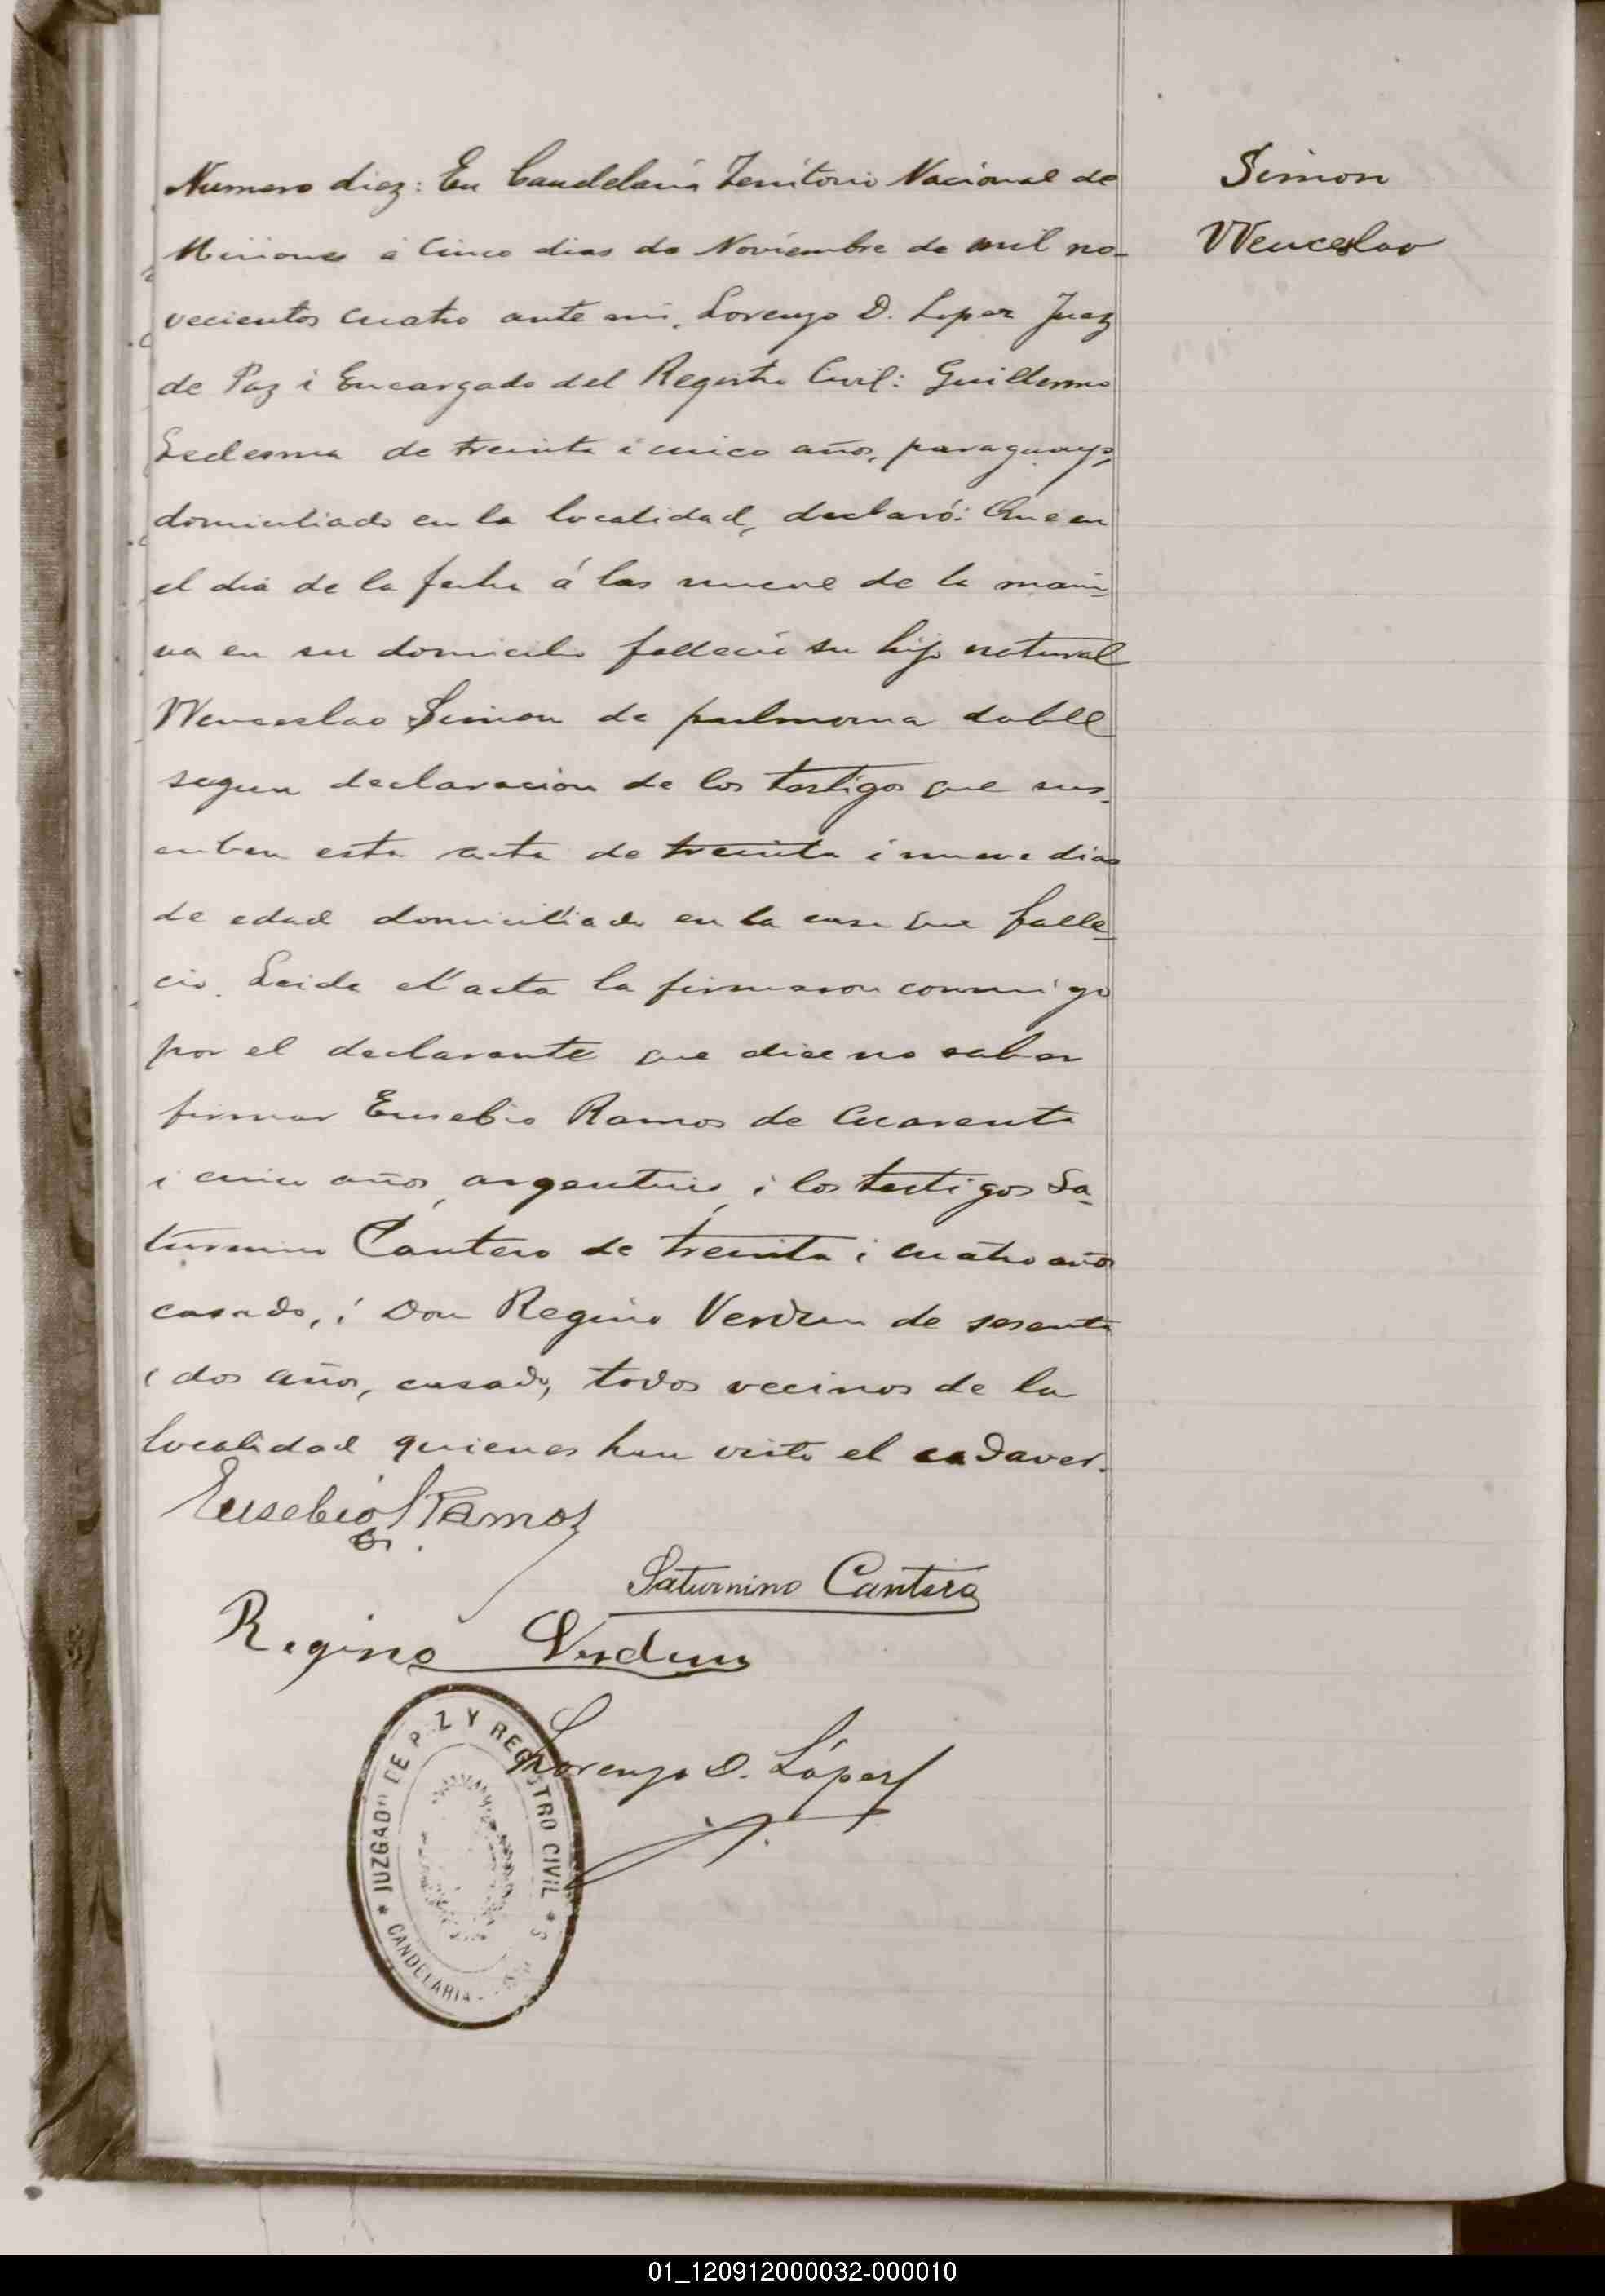 Numero diez: En Candelaria Territorio Nacional de
Misiones á Cinco dias de Noviembre de mil no-
vecientos cuatro ante mi, Lorenzo D. Lopez Juez
de Paz i Encargado del Registro Civil: Guillermo
Ledesma de treinta i cinco años, paraguayo,
domiciliado en la localidad, declaró: Que en
el dia de la fecha á las nueve de la maña-
na en su domicilio falleció su hijo natural
Wenceslao Simon de pulmonia doble
segun declaracion de los testigos que sus-
criben esta acta de treinta i nueve dias
de edad domiciliado en la casa que falle-
ció. Leida el acta la firmaron conmigo
por el declarante que dice no saber
firmar Eusebio Ramos de Cuarenta
i cinco años, argentino, i los testigos Sa-
turnino Cantero de treinta i cuatro años
casado, i Don Regino Verdun de sesenta
i dos años, casado, todos vecinos de la
localidad quienes han visto el cadaver.
Simon
Wenceslao
Eusebio Ramos
Saturnino Cantero
Regino Verdun
Lorenzo D. López
JUZGADO DE PAZ Y REGISTRO CIVIL
CANDELARIA
01_120912000032-000010